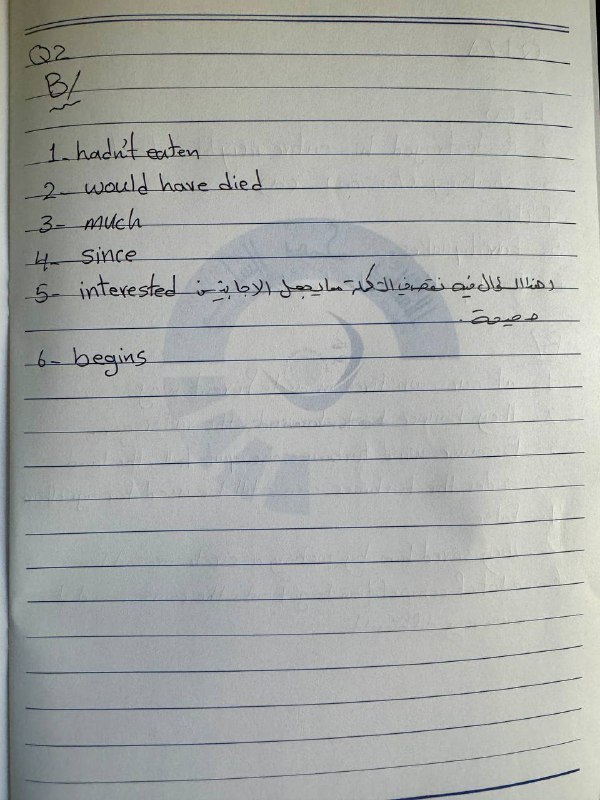 Q2
B/
1- hadn't eaten
2- would have died
3- much
4- since
5- interested وهذا السؤال فيه نقص في الحكة مما يجعل الاجابتين
صحيحة.
6- begins